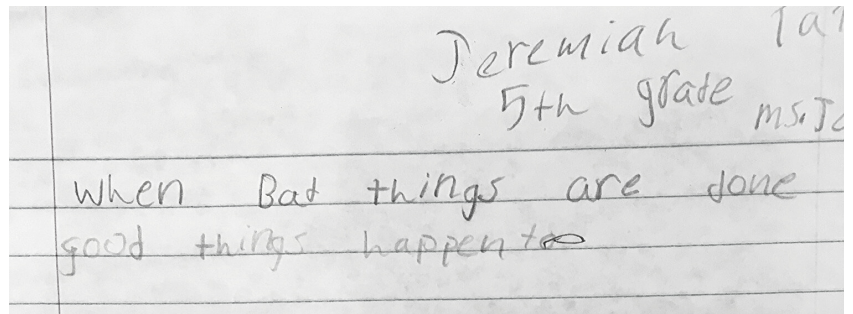 Jeremiah
5th grade ms.
When Bad things are done
good things happen too